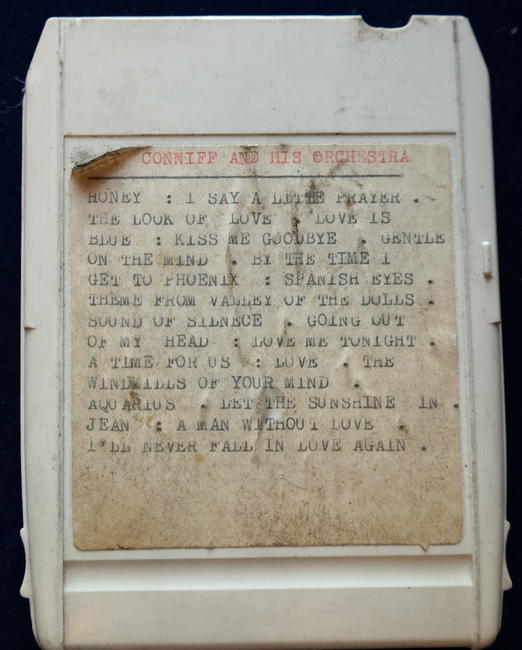 CONNIFF AND HIS ORCHESTRA
HONEY : I SAY A LITTE PRAYER .
THE LOOK OF LOVE : LOVE IS
BLUE : KISS ME GOODBYE . GENTLE
ON THE MIND . BY THE TIME I
GET TO PHOENIX : SPANISH EYES .
THEME FROM VALLEY OF THE DOLLS .
SOUND OF SILNECE . GOING OUT
OF MY HEAD : LOVE ME TONIGHT .
A TIME FOR US : LOVE . THE
WINDMILLS OF YOUR MIND .
AQUARIUS . LET THE SUNSHINE IN .
JEAN : A MAN WITHOUT LOVE .
I'LL NEVER FALL IN LOVE AGAIN .